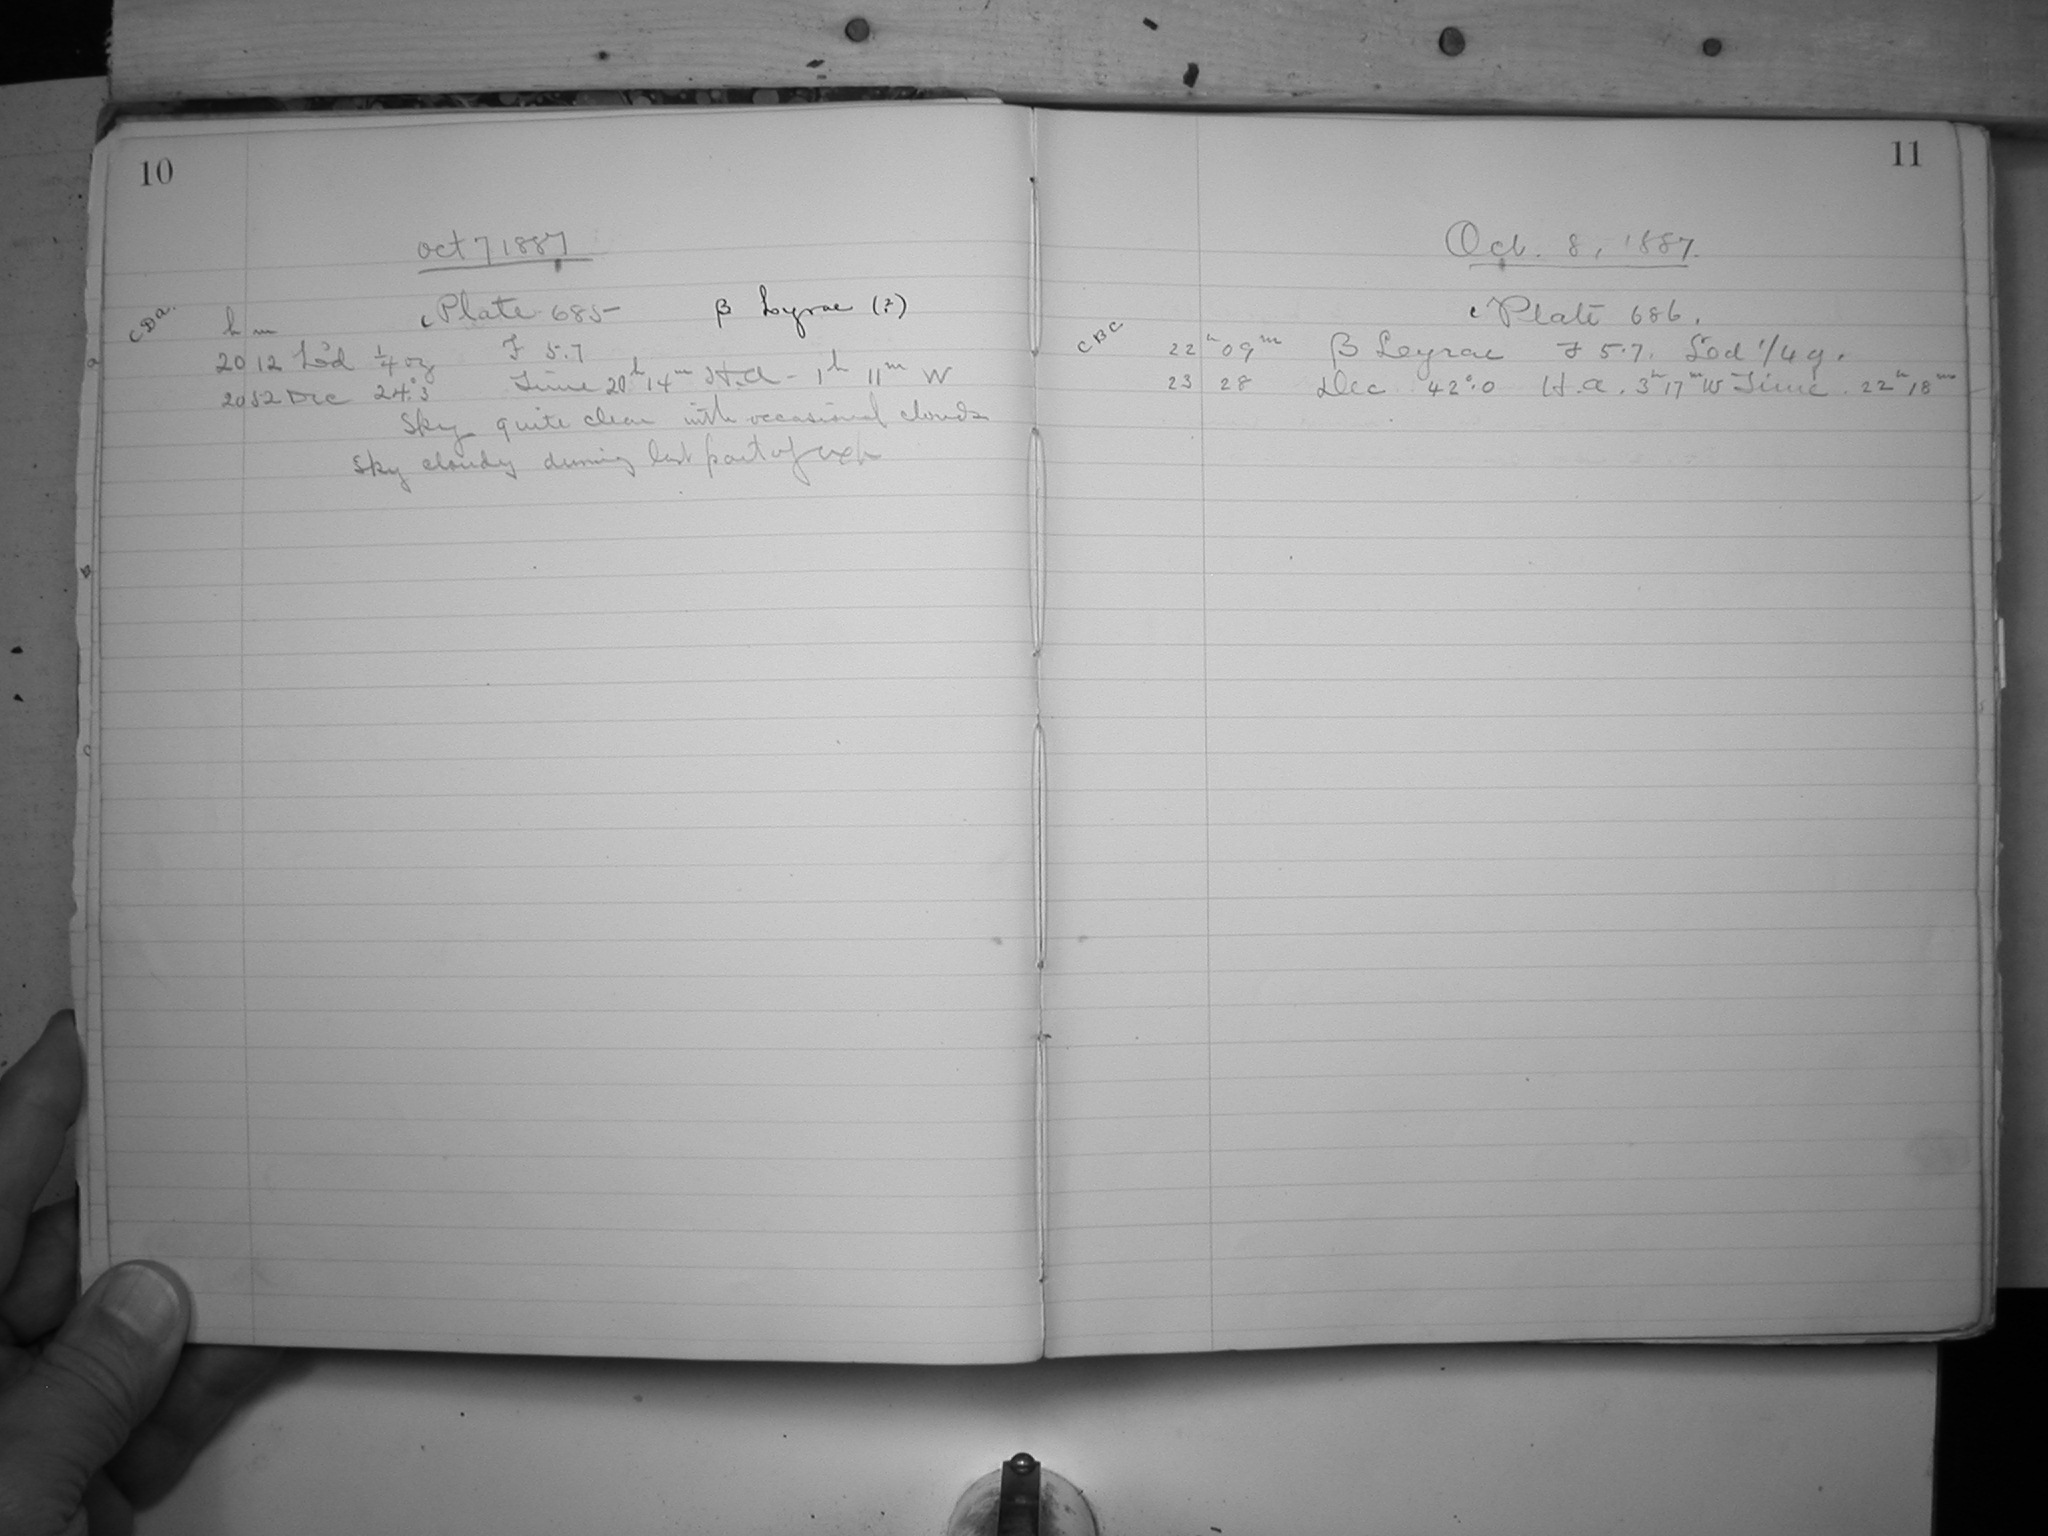 10
Oct 7 1887
c Plate 685 β Lyrae (?)
CDa.
h m
20 12 Iod 1/4 oz F 5.7
20 52 Dec 24°.3 Time 20h 14m H.a - 1h 11m W
Sky quite clear with occasional clouds
Sky cloudy during last part of exp
a
B
C
11
Oct. 8, 1887.
c Plate 686.
CBC
22h 09m β Leyrae F 5.7. 1/4 g.
23 28 Dec 42°.0 H.a. 3h 17m W Time. 22h 18m